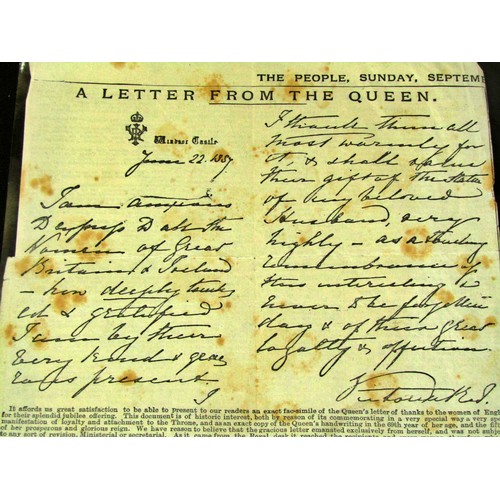 THE PEOPLE, SUNDAY, SEPTEME
A LETTER FROM THE QUEEN.
Windsor Castle
June 22. 1887
I am anxious
to express to all the
Women of Great
Britain & Ireland
how deeply touch
ed & gratified
I am by their
very kind & grac
ious present.
I thank them all
most warmly for
it, & shall value
their gift of the statue
of my beloved
Husband, very
highly – as a
remembrance of
this interesting &
never to be forgotten
day & of their great
loyalty & affection
Victoria R.I.
It affords us great satisfaction to be able to present to our readers an exact fac-simile of the Queen's letter of thanks to the women of Eng
for their splendid jubilee offering. This document is of historic interest, both by reason of its commemorating in a very special way a very spe
manifestation of loyalty and attachment to the Throne, and as an exact copy of the Queen's handwriting in the 69th year of her age, and the fif
of her prosperous and glorious reign. We have reason to believe that the gracious letter emanated exclusively from herself, and was not subje
to any sort of revision, Ministerial or secretarial. As it came from the Royal desk it reached the